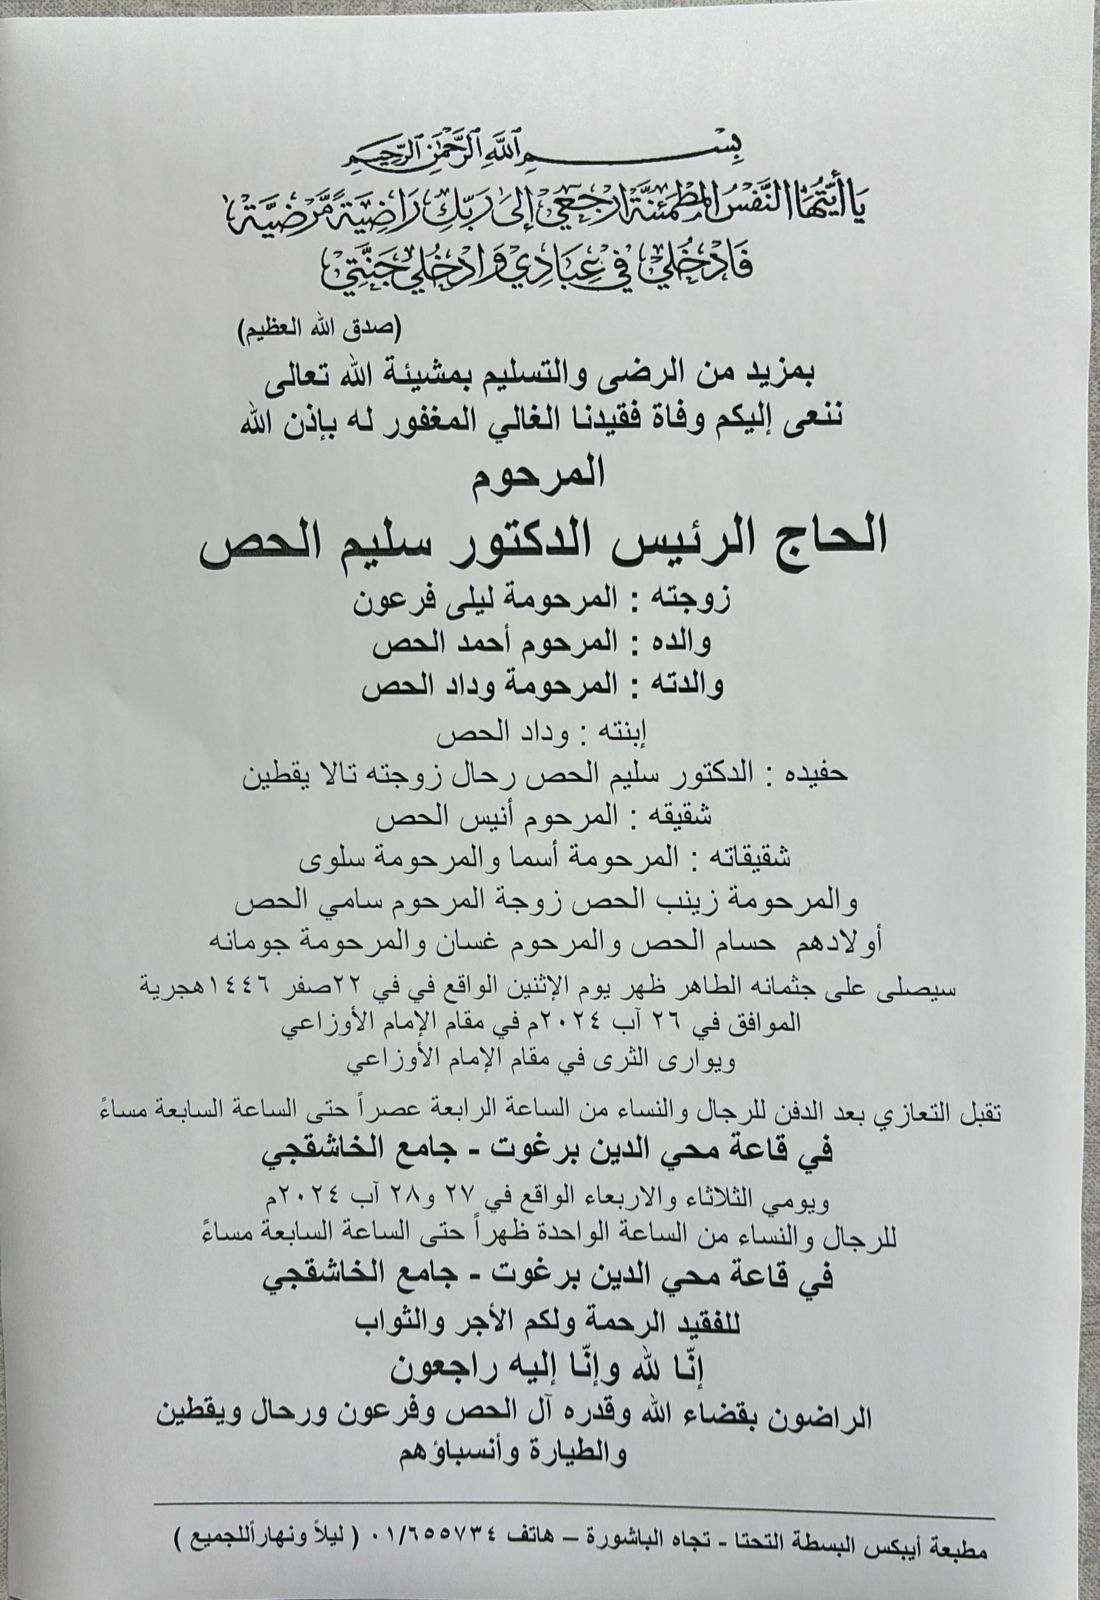 بسم الله الرحمن الرحيم
يا أيتها النفس المطمئنة ارجعي إلى ربك راضية مرضية
فادخلي في عبادي وادخلي جنتي
(صدق الله العظيم)
بمزيد من الرضى والتسليم بمشيئة الله تعالى
ننعى إليكم وفاة فقيدنا الغالي المغفور له بإذن الله
المرحوم
الحاج الرئيس الدكتور سليم الحص
زوجته : المرحومة ليلى فرعون
والده : المرحوم أحمد الحص
والدته : المرحومة وداد الحص
إبنته : وداد الحص
حفيده : الدكتور سليم الحص رحال زوجته تالا يقطين
شقيقه : المرحوم أنيس الحص
شقيقاته : المرحومة أسما والمرحومة سلوى
والمرحومة زينب الحص زوجة المرحوم سامي الحص
أولادهم حسام الحص والمرحوم غسان والمرحومة جومانه
سيصلى على جثمانه الطاهر ظهر يوم الإثنين الواقع في في ٢٢صفر ١٤٤٦هجرية
الموافق في ٢٦ آب ٢٠٢٤م في مقام الإمام الأوزاعي
ويوارى الثرى في مقام الإمام الأوزاعي
تقبل التعازي بعد الدفن للرجال والنساء من الساعة الرابعة عصراً حتى الساعة السابعة مساءً
في قاعة محي الدين برغوت - جامع الخاشقجي
ويومي الثلاثاء والاربعاء الواقع في ٢٧ و٢٨ آب ٢٠٢٤م
للرجال والنساء من الساعة الواحدة ظهراً حتى الساعة السابعة مساءً
في قاعة محي الدين برغوت - جامع الخاشقجي
للفقيد الرحمة ولكم الأجر والثواب
إنّا لله وإنّا إليه راجعون
الراضون بقضاء الله وقدره آل الحص وفرعون ورحال ويقطين
والطيارة وأنسباؤهم
مطبعة أيبكس البسطة التحتا - تجاه الباشورة – هاتف ٠١/٦٥٥٧٣٤ ( ليلاً ونهارأللجميع )